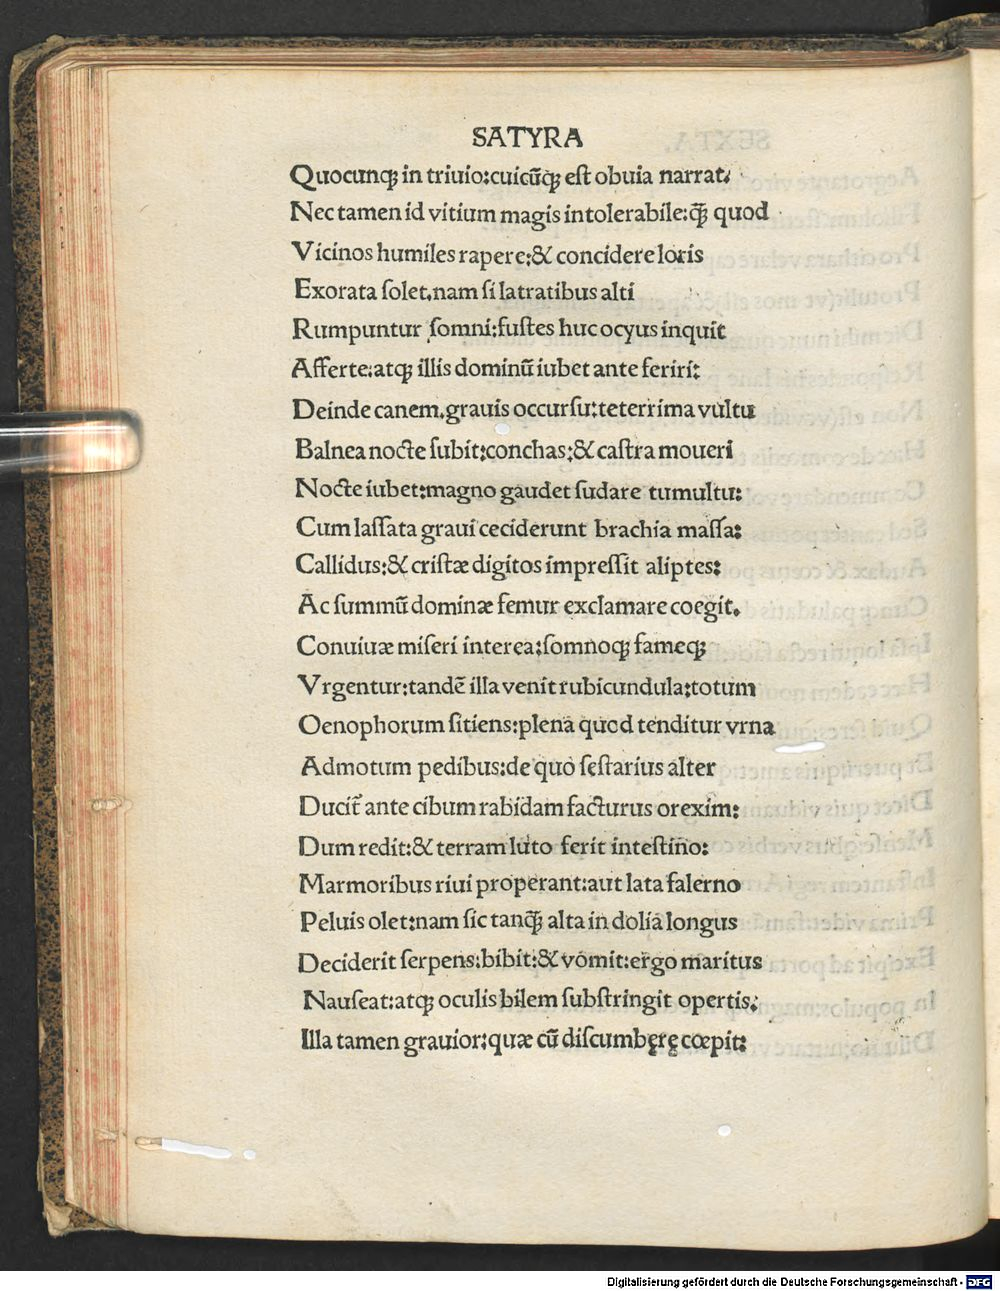 SATYRA
Quocunqꝫ in triuio:cuicūqꝫ eſt obuia narrat.
Nec tamen id vitium magis intolerabile:ꝙ̄ quod
Vicinos humiles rapere:& concidere loris
Exorata ſolet.nam ſi latratibus alti
Rumpuntur ſomni:fuſtes huc ocyus inquit
Afferte:atqꝫ illis dominū iubet ante feriri:
Deinde canem.grauis occurſu:teterrima vultu
Balnea nocte ſubit:conchas:& caſtra moueri
Nocte iubet:magno gaudet ſudare tumultu:
Cum laſſata graui ceciderunt brachia maſſa:
Callidus:& criſtæ digitos impreſſit aliptes:
Ac ſummū dominæ femur exclamare coegit.
Conuiuæ miſeri interea:ſomnoqꝫ fameqꝫ
Vrgentur:tandē illa venit rubicundula:totum
Oenophorum ſitiens:plena quod tenditur vrna
Admotum pedibus:de quo ſeſtarius alter
Ducit̄ ante cibum rabidam facturus orexim:
Dum redit:& terram luto ferit inteſtino:
Marmoribus riui properant:aut lata falerno
Peluis olet:nam ſic tanꝙ̄ alta in dolia longus
Deciderit ſerpens:bibit:& vomit:ergo maritus
Nauſeat:atqꝫ oculis bilem ſubſtringit opertis.
Illa tamen grauior:quæ cū diſcumbęrę cœpit:
Digitalisierung gefördert durch die Deutsche Forschungsgemeinschaft - DFG